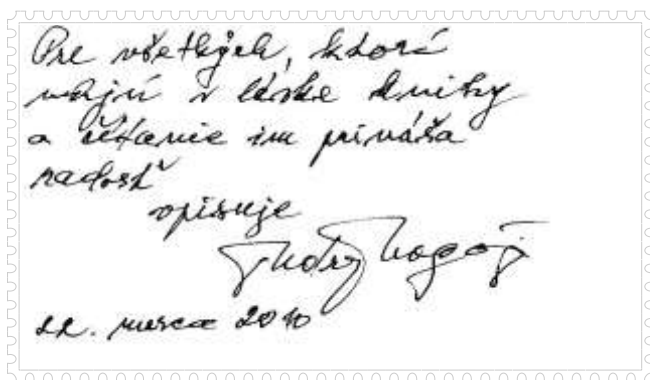 Pre všetkých, ktorí
majú v láske knihy
a čítanie im prináša
radosť
opisuje
22. marca 2010